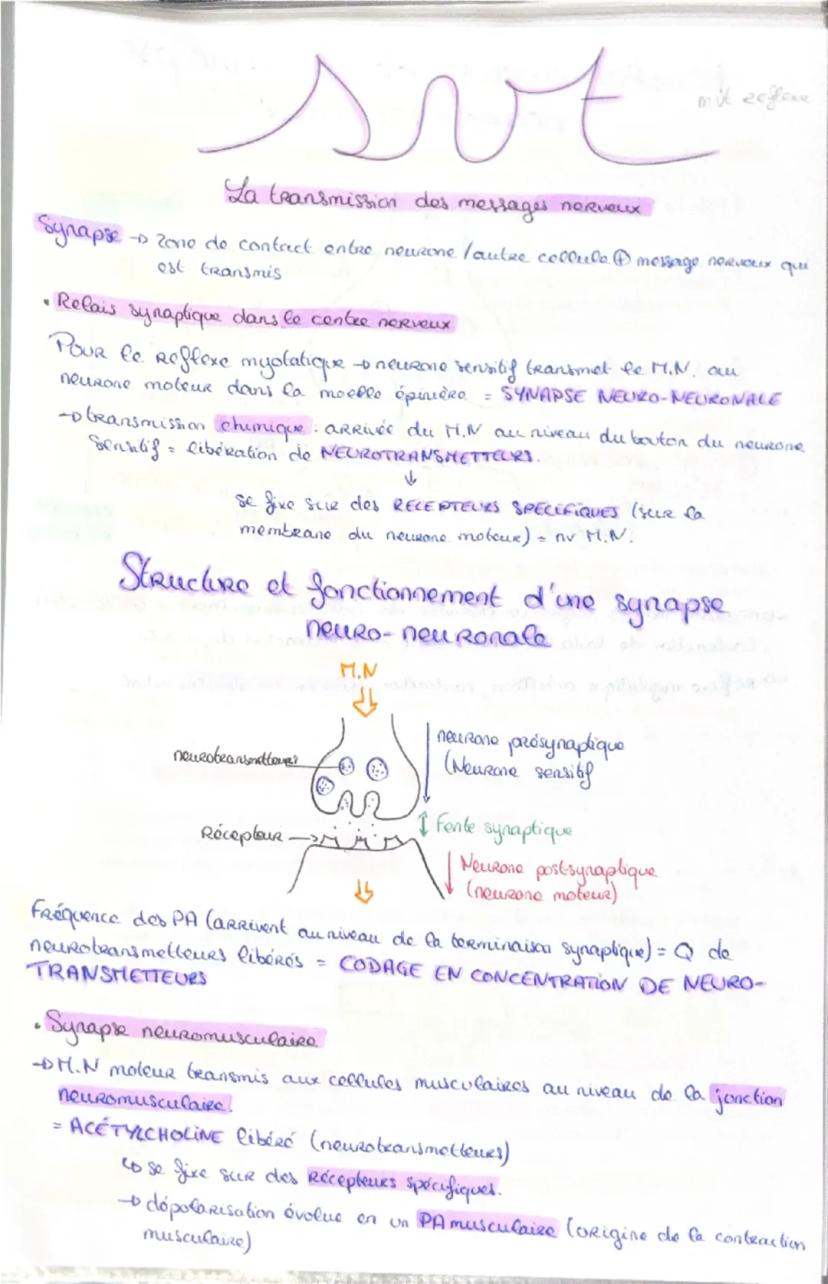 svt
La transmission des messages nerveux
Synapse → zone de contact entre neurone / autre cellule ⊕ message nerveux qui
est transmis
• Relais synaptique dans le centre nerveux
Pour le Reflexe myotatique → neurone sensitif transmet le M.N. au
neurone moteur dans la moelle épinière = SYNAPSE NEURO-NEURONALE
→ transmission chimique : arrivée du M.N au niveau du bouton du neurone
sensitif = libération de NEUROTRANSMETTEURS.
↓
se fixe sur des RÉCEPTEURS SPÉCIFIQUES (sur la
membrane du neurone moteur) = nv M.N.
Structure et fonctionnement d'une synapse
neuro-neuronale
M.N
neurotransmetteurs
neurone présynaptique
(Neurone sensitif
Récepteur →
Fente synaptique
Neurone postsynaptique
(neurone moteur)
Fréquence des PA (arrivent au niveau de la terminaison synaptique) = Q de
neurotransmetteurs libérés = CODAGE EN CONCENTRATION DE NEURO-
TRANSMETTEURS
• Synapse neuromusculaire
→ M.N moteur transmis aux cellules musculaires au niveau de la jonction
neuromusculaire.
= ACÉTYLCHOLINE libéré (neurotransmetteurs)
↳ se fixe sur des Récepteurs spécifiques.
→ dépolarisation évolue en un PA musculaire (origine de la contraction
musculaire)